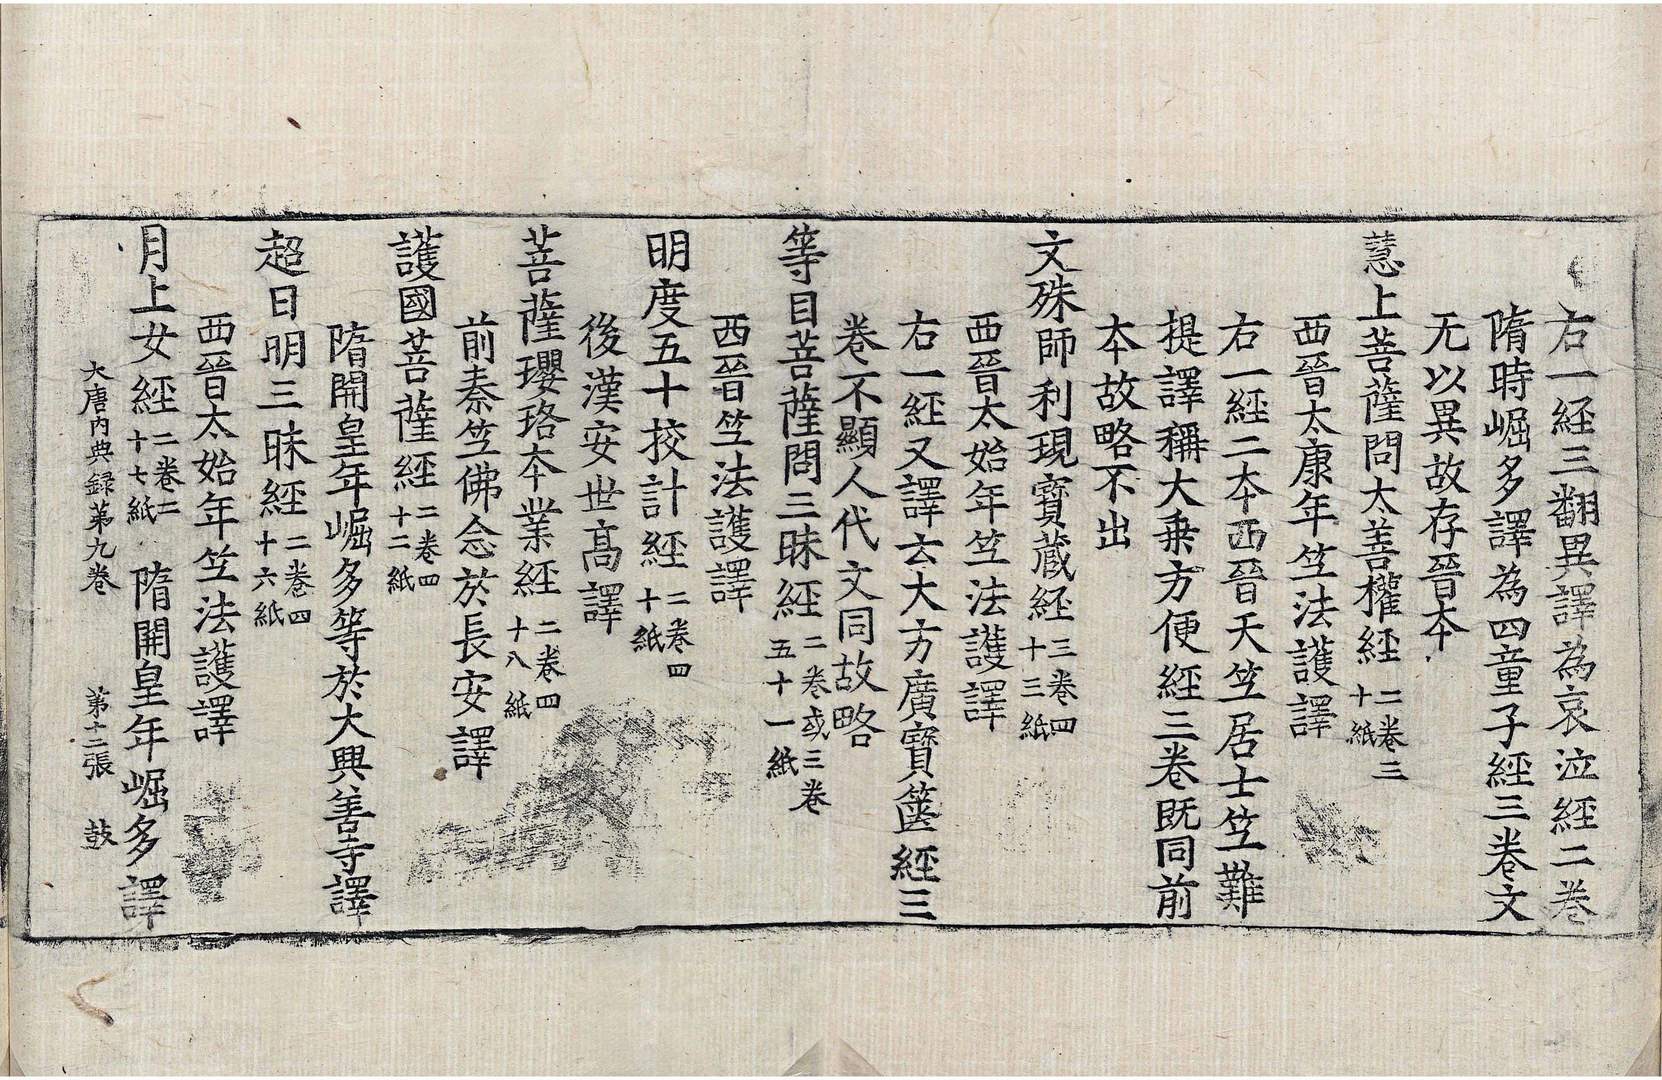 右一経三翻異譯為哀泣経二卷
隋時崛多譯為四童子經三卷文
无以異故存晉夲
慧上菩薩問太善權經二卷三十紙
西晉太康年竺法護譯
右一經二夲西晉天竺居士竺難
提譯稱大乗方便經三卷既同前
夲故略不出
文殊師利現寳蔵経三卷四十三紙
西晉太始年竺法護譯
右一経又譯云大方廣寳篋經三
卷不顯人代文同故略
等目菩薩問三昧経二卷或三卷五十一紙
西晉竺法護譯
明度五十挍計經二卷四十紙
後漢安世髙譯
菩薩瓔珞夲業經二卷四十八紙
前秦竺佛念於長安譯
護國菩薩經二卷四十二紙
隋開皇年崛多等於大興善寺譯
超日明三昧經二卷四十六紙
西晉太始年竺法護譯
月上女經二卷二十七紙 隋開皇年崛多譯
大唐内典録第九卷 第十二張 鼓